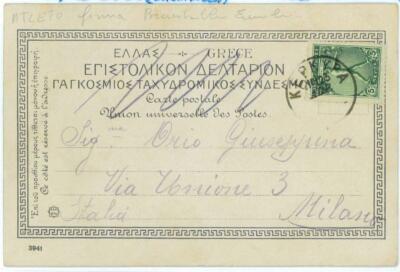 ATLETO firma
ΕΛΛΑΣ GREECE
ΕΠΙΣΤΟΛΙΚΟΝ ΔΕΛΤΑΡΙΟΝ
ΠΑΓΚΟΣΜΙΟΣ ΤΑΧΥΔΡΟΜΙΚΟΣ ΣΥΝΔΕΣΜΟΣ
Carte postale
Union universelle des Postes.
ΚΕΡΚΥΡΑ
5
5
Sig.na Orio Giuseppina
Via Unione 3
Milano
Italia
Ce côté est réservé à l'adresse
3941